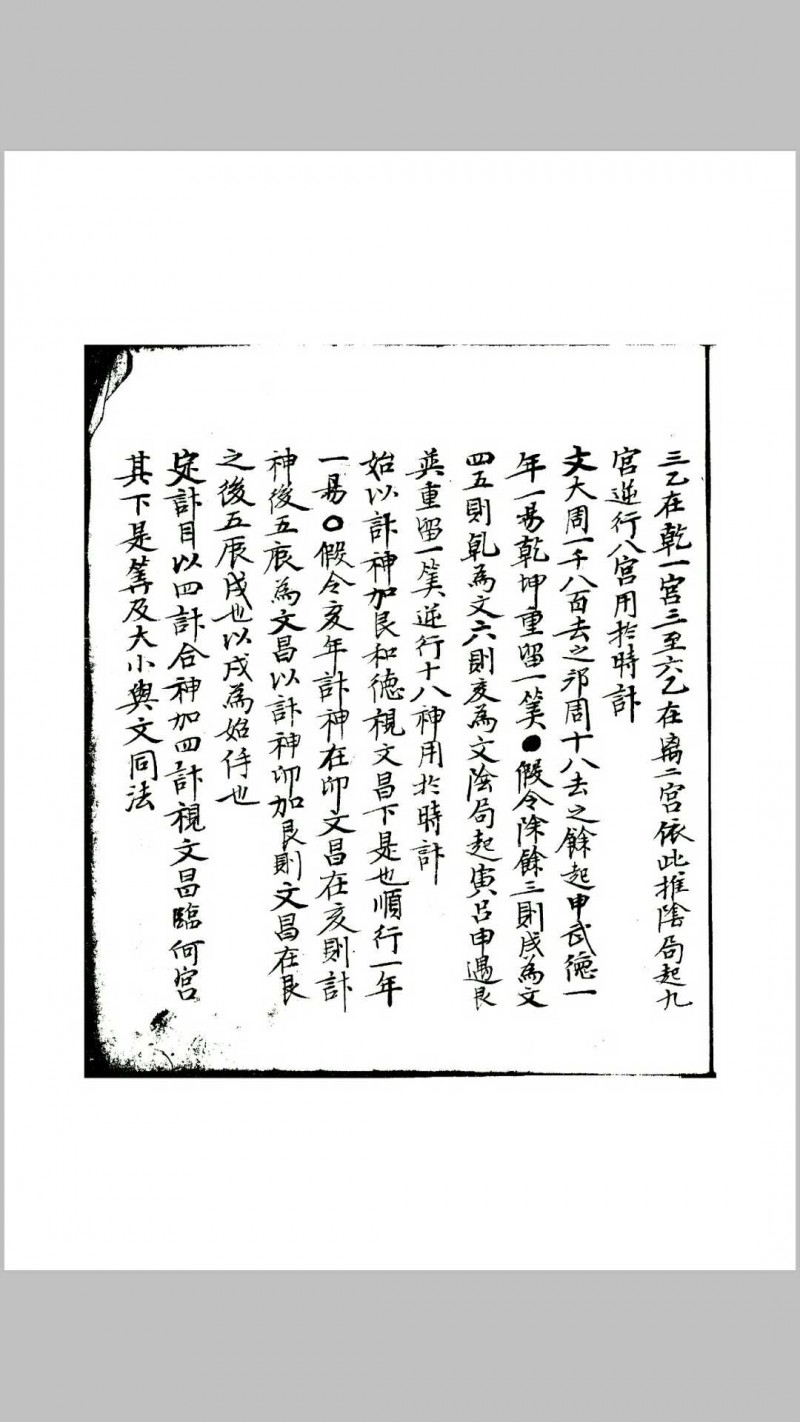 三乙在乾一宫三至六乙在离二宫依此推陰局起九
宫逆行八宫用於時計
文大周一千八百去之邪周十八去之餘起申武德一
年一易乾坤重留一筭●假令除餘三則戌為文
四五則乹為文六則亥為文陰局起寅吕申遇艮
巽重留一筭逆行十八神用於時計
始以計神加艮和德視文昌下是也順行一年
一易○假令亥年計神在卯文昌在亥則計
神後五辰為文昌以計神卯加艮則文昌在艮
之後五辰戌也以戌為始侍也
定計目以四計合神加四計視文昌臨何宫
其下是筭及大小與文同法